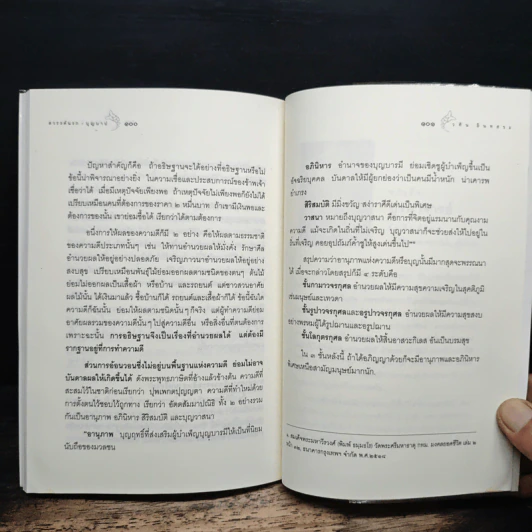 ๑๐๐
ปัญหาสำคัญก็คือ ถ้าอธิษฐานจะได้อย่างที่อธิษฐานหรือไม่
ข้อนี้น่าพิจารณาอย่างยิ่ง ในความเชื่อและประสบการณ์ของข้าพเจ้า
เชื่อว่าได้ เมื่อมีเหตุปัจจัยเพียงพอ ถ้าเหตุปัจจัยไม่เพียงพอก็ยังไม่ได้
เปรียบเหมือนคนที่ต้องการของราคา ๒ หมื่นบาท ถ้าเขามีเงินพอและ
ต้องการของนั้น เขาย่อมซื้อได้ เรียกว่าได้ตามต้องการ
อนึ่งการให้ผลของความดีก็มี ๒ อย่าง คือให้ผลตามธรรมชาติ
ของความดีประเภทนั้นๆ เช่น ให้ทานอำนวยผลให้มั่งคั่ง รักษาศีล
อำนวยผลให้อยู่อย่างปลอดภัย เจริญภาวนาอำนวยผลให้อยู่อย่าง
สงบสุข เปรียบเหมือนพันธุ์ไม้ย่อมออกผลตามชนิดของตนๆ ต้นไม้
ย่อมไม่ออกผลเป็นเสื้อผ้า หรือบ้าน และ รถยนต์ แต่ชาวสวนอาศัย
ผลไม้นั้น ได้เงินมาแล้ว ซื้อบ้านก็ได้ รถยนต์และเสื้อผ้าก็ได้ ข้อนี้ฉันใด
ความดีก็ฉันนั้น ย่อมให้ผลตามชนิดนั้นๆก็จริง แต่ผู้ทำความดีย่อม
อาศัยผลรวมของความดีนั้นๆไปสู่ความดีอื่น หรือสิ่งอื่นที่ตนต้องการ
เพราะฉะนั้น การอธิษฐานจึงเป็นเรื่องที่อำนวยผลได้ แต่ต้องมี
รากฐานอยู่ที่การทำความดี
ส่วนการอ้อนวอนซึ่งไม่อยู่บนพื้นฐานแห่งความดี ย่อมไม่อาจ
บันดาลผลให้เกิดขึ้นได้ ดังพระพุทธภาษิตที่อ้างแล้วข้างต้น ความดีที่
สะสมไว้ในชาติก่อนเรียกว่า ปุพเพกตปุญญตา ความดีที่ทำใหม่ด้วย
การตั้งตนไว้ชอบไว้ถูกทาง เรียกว่า อัตตสัมมาปณิธิ ทั้ง ๒ อย่างรวม
กันเป็นอานุภาพ อภินิหาร สิริสมบัติ และบุญวาสนา
"อานุภาพ บุญฤทธิ์ที่ส่งเสริมผู้บำเพ็ญบุญบารมีให้เป็นที่นิยม
นับถือของมวลชน
๑๐๑
อภินิหาร อำนาจของบุญบารมี ย่อมเชิดชูผู้บำเพ็ญขึ้นเป็น
อัจฉริยบุคคล บันดาลให้มีผู้ยกย่องว่าเป็นคนมีน้ำหนัก น่าเคารพ
ยำเกรง
สิริสมบัติ มีมิ่งขวัญ สง่าราศีดีเด่นเป็นพิเศษ
วาสนา หมายถึงบุญวาสนา คือการที่จิตอยู่แรมนานกับคุณงาม
ความดี แม้จะเกิดในถิ่นที่ไม่เจริญ บุญวาสนาก็จะช่วยส่งให้ไปอยู่ใน
ถิ่นที่เจริญ คอยอุปถัมภ์ค้ำชูให้สูงเด่นขึ้นไป"
สรุปความว่าอานุภาพแห่งความดีหรือบุญนั้นมีมากสุดจะพรรณนา
ได้ เมื่อจะกล่าวโดยสรุปก็มี ๔ ระดับคือ
ชั้นกามาวจรกุศล อำนวยผลให้มีความสุขความเจริญในสุคติภูมิ
เช่นมนุษย์และเทวดา
ชั้นรูปาวจรกุศลและอรูปาวจรกุศล อำนวยผลให้มีความสุขสงบ
อย่างพรหมผู้ได้รูปฌานและอรูปฌาน
ชั้นโลกุตรกุศล อำนวยผลให้สิ้นอาสวะกิเลส อันเป็นบรมสุข
ใน ๓ ชั้นหลังนี้ ถ้าได้อภิญญาด้วยก็จะมีอานุภาพและอภินิหาร
พิเศษเหนือสามัญมนุษย์มากนัก.
๑. สมเด็จพระมหาวีรวงศ์ (พิมพ์ ธมฺมธโร) วัดพระศรีมหาธาตุ กทม. มงคลยอดชีวิต เล่ม ๑
หน้า ๑๒, ธนาคารกรุงเทพฯ จำกัด พ.ศ.๒๕๑๔